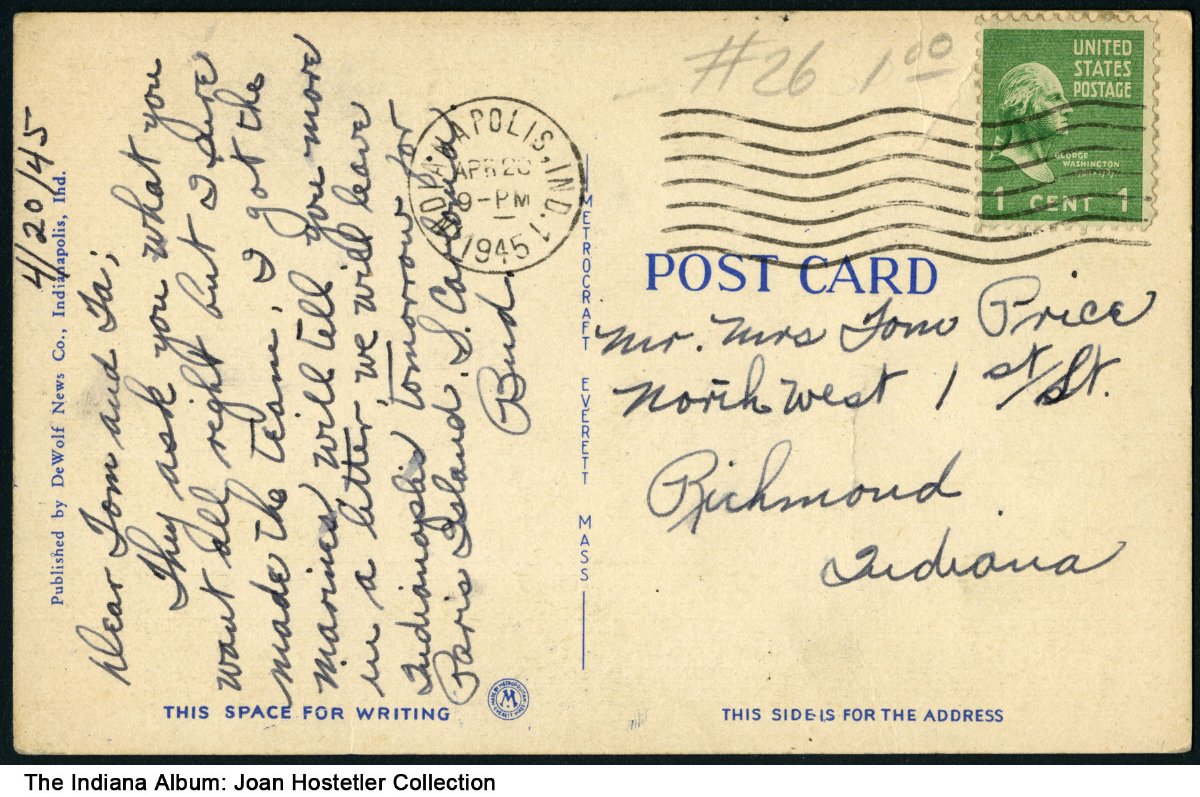 4/20/45
Dear Tom and Ia;
They ask you what you
want all right but I sure
made the team. I got the
marines will tell you more
in a letter, we will leave
Indianaplis tomorrow for
Paris Island S. Carolina.
Bud.
Published by DeWolf News Co., Indianapolis, Ind.
THIS SPACE FOR WRITING
MADE BY METROPOLITAN
M
EVERETT MASS
METROCRAFT EVERETT MASS
#26 1.00
INDIANAPOLIS, IND.
APR 20
9-PM
1945
1
UNITED
STATES
POSTAGE
GEORGE
WASHINGTON
1 CENT 1
POST CARD
Mr. Mrs Tom Price
North West 1st/St.
Richmond
Indiana
THIS SIDE IS FOR THE ADDRESS
The Indiana Album: Joan Hostetler Collection